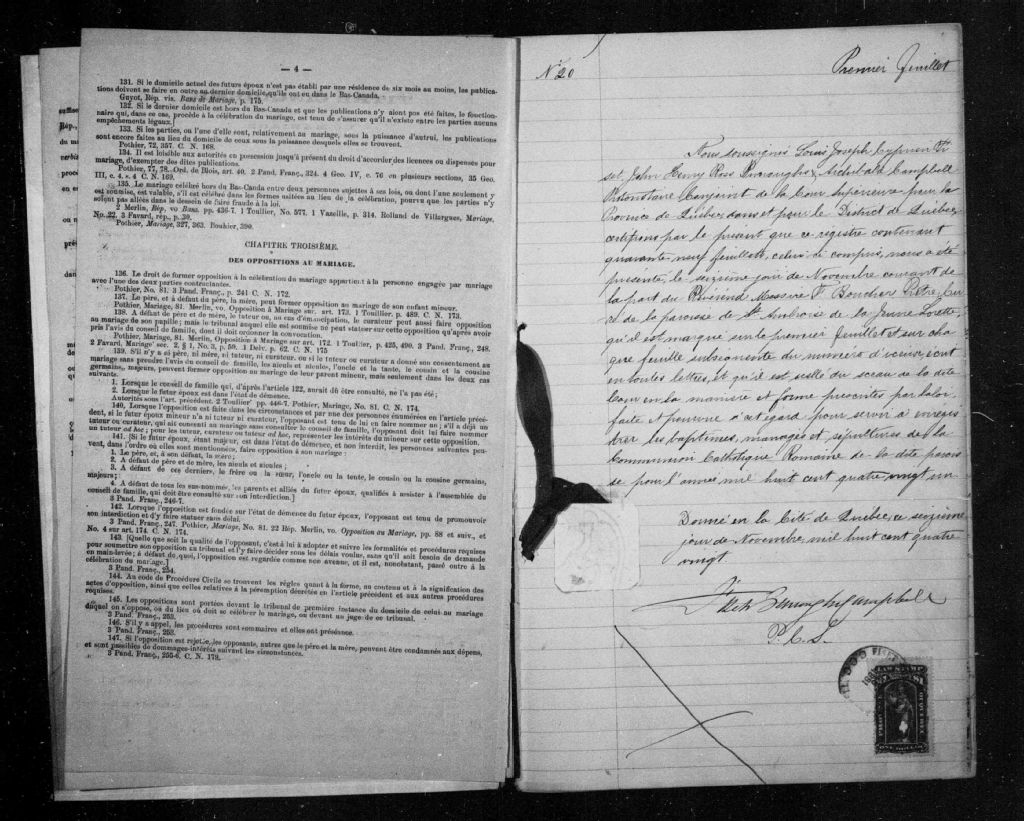 — 4 —
131. Si le domicile actuel des futurs époux n'est pas établi par une résidence de six mois au moins, les publica-
tions doivent se faire en outre au dernier domicile qu'ils ont eu dans le Bas-Canada.
Guyot, Rép. vis. Bans de Mariage, p. 175.
132. Si le dernier domicile est hors du Bas-Canada et que les publications n'y aient pas été faites, le fonction-
naire qui, dans ce cas, procède à la célébration du mariage, est tenu de s'assurer qu'il n'existe entre les parties aucuns
empêchements légaux.
133. Si les parties, ou l'une d'elle sont, relativement au mariage, sous la puissance d'autrui, les publications
sont encore faites au lieu du domicile de ceux sous la puissance desquels elles se trouvent.
Pothier, 72, 357. C. N. 168.
134. Il est loisible aux autorités en possession jusqu'à présent du droit d'accorder des licences ou dispenses pour
mariage, d'exempter des dites publications.
Pothier, 77, 78. Ord. de Blois, art. 40. 2 Pand. Franç., 324. 4 Geo. IV, c. 76 en plusieurs sections, 35 Geo.
III, c. 4. s. 4 C. N. 169.
135. Le mariage célébré hors du Bas-Canda entre deux personnes sujettes à ses lois, ou dont l'une seulement y
est soumise, est valable, s'il est célébré dans les formes usitées au lieu de la célébration, pourvu que les parties n'y
soient pas allées dans le dessein de faire fraude à la loi.
2 Merlin, Rép. vo Bans. pp. 436-7. 1 Toullier, No. 577. 1 Vazeille, p. 314. Rolland de Villargues, Mariage,
No. 22. 3 Favard, rép., p. 39.
Pothier, Mariage, 327, 363. Bouhier, 390.
CHAPITRE TROISIÈME.
DES OPPOSITIONS AU MARIAGE.
136. Le droit de former opposition à la célébration du mariage appartient à la personne engagée par mariage
avec l'une des deux parties contractantes.
Pothier, No. 81. 3 Pand. Franç., p. 241 C. N. 172.
137. Le père, et à défaut du père, la mère, peut former opposition au mariage de son enfant mineur.
Pothier, Mariage, 81. Merlin, vo. Opposition à Mariage sur. art. 173. 1 Toullier, p. 489. C. N. 173.
138. A défaut de père et de mère, le tuteur ou, au cas d'émancipation, le curateur peut aussi faire opposition
au mariage de son pupille; mais le tribunal auquel elle est soumise ne peut statuer sur cette opposition qu'après avoir
pris l'avis du conseil de famille, dont il doit ordonner la convocation.
Pothier, Mariage, 81. Merlin, Opposition à Mariage sur art. 172. 1 Toullier, p. 425, 490. 3 Pand. Franç., 248.
2 Favard, Mariage sec. 2. § 1, No. 3, p. 59. 1 Delv. p. 62. C. N. 175
139. S'il n'y a ni père, ni mère, ni tuteur, ni curateur, ou si le tuteur ou curateur a donné son consentement au
mariage sans prendre l'avis du conseil de famille, les aïeuls et aïeules, l'oncle et la tante, le cousin et la cousine
germains, majeurs, peuvent former opposition au mariage de leur parent mineur, mais seulement dans les deux cas
suivants.
1. Lorsque le conseil de famille qui, d'après l'article 122, aurait dû être consulté, ne l'a pas été;
2. Lorsque le futur époux est dans l'état de démence.
Autorités sous l'art. précédent. 2 Toullier pp. 446-7. Pothier, Mariage, No. 81. C. N. 174.
140. Lorsque l'opposition est faite dans les circonstances et par une des personnes énumérées en l'article précé-
dent, si le futur époux mineur n'a ni tuteur ni curateur, l'opposant est tenu de lui en faire nommer un; s'il a déjà un
tuteur ou curateur, qui ait consenti au mariage sans consulter le conseil de famille, l'opposant doit lui faire nommer
un tuteur ad hoc; pour les tuteur, curateur ou tuteur ad hoc, représenter les intérêts du mineur sur cette opposition.
141. [Si le futur époux, étant majeur, est dans l'état de démence, et non interdit, les personnes suivantes peu-
vent, dans l'ordre où elles sont mentionnées, faire opposition à son mariage:
1. Le père, et, à son défaut, la mère;
2. A défaut de père et de mère, les aïeuls et aïeules;
3. A défaut de ces derniers, le frère ou la sœur, l'oncle ou la tante, le cousin ou la cousine germains,
majeurs;
4. A défaut de tous les sus-nommés, les parents et alliés du futur époux, qualifiés à assister à l'assemblée du
conseil de famille, qui doit être consulté sur son interdiction.]
3 Pand. Franç., 246-7.
142. Lorsque l'opposition est fondée sur l'état de démence du futur époux, l'opposant est tenu de promouvoir
son interdiction et d'y faire statuer sans délai.
3 Pand. Franç., 247. Pothier, Mariage, No. 81. 22 Rép. Merlin, vo. Opposition au Mariage, pp. 88 et suiv., et
No. 4 sur art. 174. C. N. 174.
143. [Quelle que soit la qualité de l'opposant, c'est à lui à adopter et suivre les formalités et procédures requises
pour soumettre son opposition au tribunal et l'y faire décider sous les délais voulus, sans qu'il soit besoin de demande
en main-levée; à défaut de quoi, l'opposition est regardée comme non avenue, et il est, nonobstant, passé outre à la
célébration du mariage.]
3 Pand. Franç., 254.
144. Au code de Procédure Civile se trouvent les règles quant à la forme, au contenu et à la signification des
actes d'opposition, ainsi que celles relatives à la péremption décrétée en l'article précédent et aux autres procédures
requises.
145. Les oppositions sont portées devant le tribunal de première instance du domicile de celui au mariage
duquel on s'oppose, ou du lieu où doit se célébrer le mariage, ou devant un juge de ce tribunal.
3 Pand. Franç., 253.
146. S'il y a appel, les procédures sont sommaires et elles ont préséance.
3 Pand. Franç., 253.
147. Si l'opposition est rejetée, les opposants, autres que le père et la mère, peuvent être condamnés aux dépens,
et sont passibles de dommages-intérêts suivant les circonstances.
3 Pand. Franç., 255-6. C. N. 179.
No 20
Premier feuillet
Nous soussignés Louis Joseph Cyprien Fi
set, John Henry Ross Burroughs, Archibald Campbell
Protonotaire Conjoint de la Cour Supérieure pour la
Province de Québec dans et pour le District de Québec
certifions par le présent que ce registre contenant
quarante neuf feuillets, celui-ci compris, nous a été
présenté, le seizième jour de Novembre courant de
la part du Révérend Messire F. Boucher Prêtre, Cu-
ré de la paroisse de St. Ambroise de la Jeune Lorette,
qu'il est marqué sur le premier feuillet et sur cha
que feuille subséquente du numéro d'icelui, écrit
en toutes lettres, et qu'il est scellé du sceau de la dite
Cour en la manière et forme prescrites par la loi,
faite et pourvue à cet égard pour servir à enregis
trer les baptêmes, mariages et sépultures de la
Communion Catholique Romaine de la dite parois
se pour l'année mil huit cent quatre vingt un
Donné en la Cité de Québec, ce seizième
jour de Novembre mil huit cent quatre
vingt
Fiset Burroughs Campbell
P. C. S.
LAW STAMP
QUEBEC
ONE DOLLAR